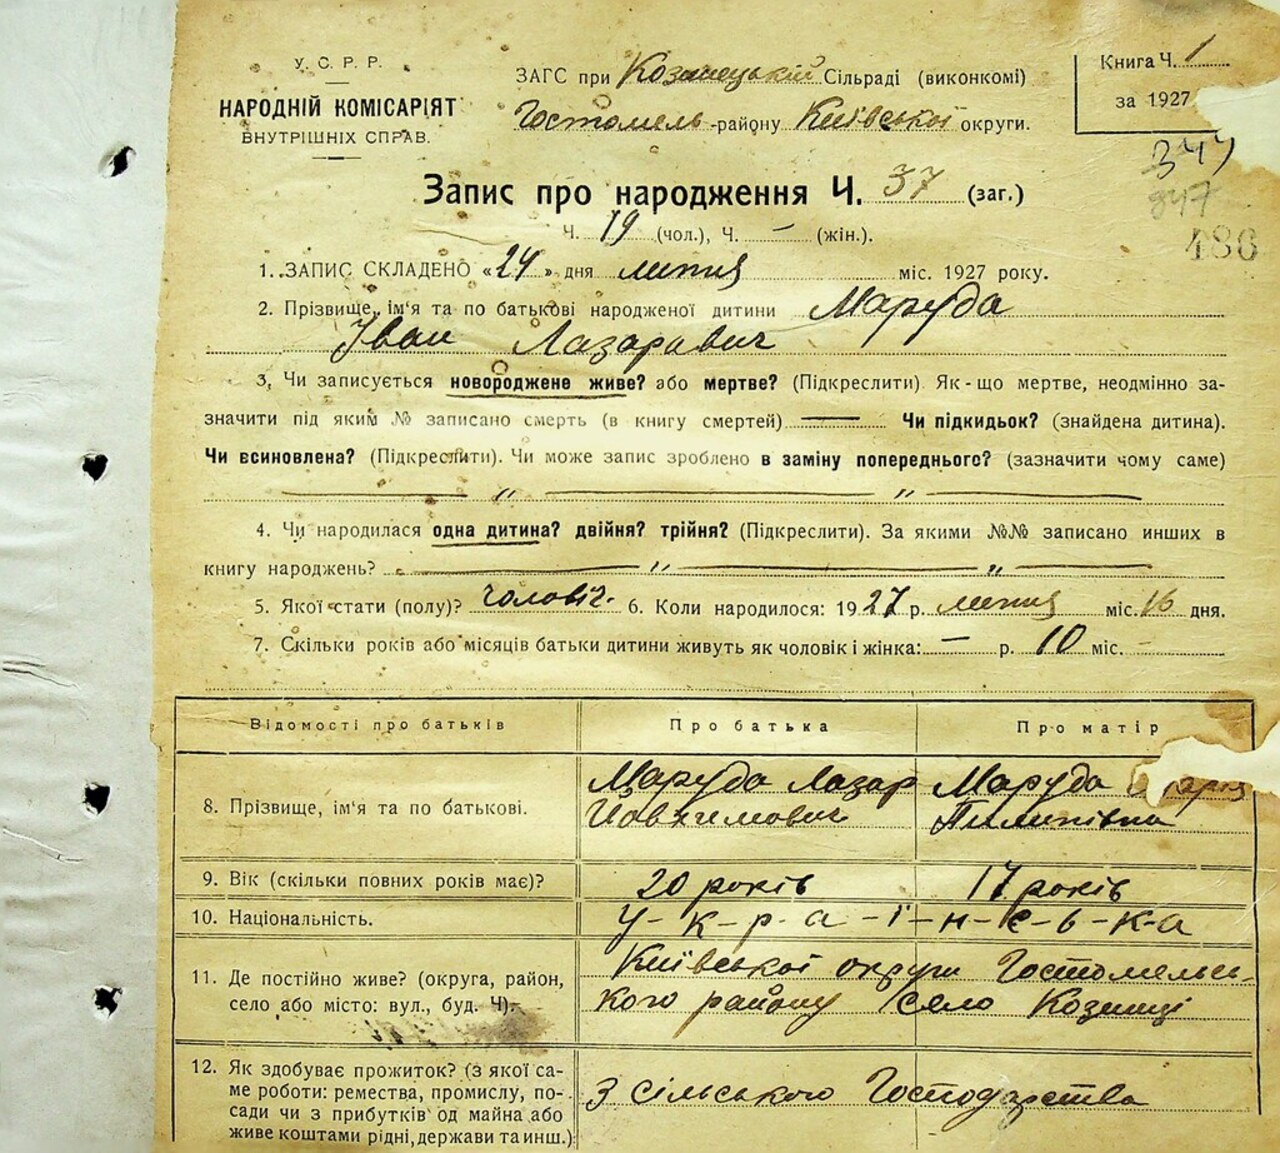 У. С. Р. Р.
НАРОДНІЙ КОМІСАРІЯТ
ВНУТРІШНІХ СПРАВ.
ЗАГС при Козинецькій Сільраді (виконкомі)
Гостомель-району Київської округи.
Книга Ч. 1
за 1927
347
347
486
Запис про народження Ч. 37 (заг.)
Ч. 19 (чол.), Ч. — (жін.).
1. ЗАПИС СКЛАДЕНО «24» дня липня міс. 1927 року.
2. Прізвище, ім'я та по батькові народженої дитини Маруда
Іван Лазаравич
3. Чи записується новороджене живе? або мертве? (Підкреслити). Як-що мертве, неодмінно за-
значити під яким № записано смерть (в книгу смертей) — Чи підкидьок? (знайдена дитина).
Чи всиновлена? (Підкреслити). Чи може запис зроблено в заміну попереднього? (зазначити чому саме)
— „ — „ —
4. Чи народилася одна дитина? двійня? трійня? (Підкреслити). За якими №№ записано инших в
книгу народжень? — „ — „ —
5. Якої стати (полу)? чоловіч. 6. Коли народилося: 1927 р. липня міс. 16 дня.
7. Скільки років або місяців батьки дитини живуть як чоловік і жінка: — р. 10 міс.
Відомості про батьків Про батька Про матір
8. Прізвище, ім'я та по батькові.
Маруда Лазар
Йовхимович
Маруда
Пилипівна
9. Вік (скільки повних років має)? 20 років 17 років
10. Національність. У-к-р-а-ї-н-с-ь-к-а
11. Де постійно живе? (округа, район,
село або місто: вул., буд. Ч).
Київської округи Гостомельсь-
кого району село Козинці
12. Як здобуває прожиток? (з якої са-
ме роботи: ремества, промислу, по-
сади чи з прибутків од майна або
живе коштами рідні, держави та инш.)
З сільського Господарства